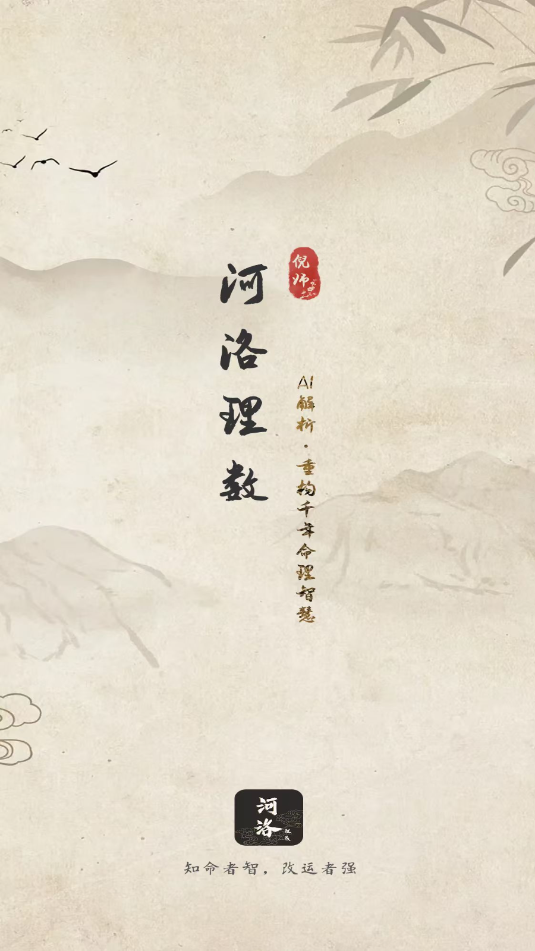 倪师
河洛理数
AI解析·重构千年命理智慧
河洛
知命者智，改运者强